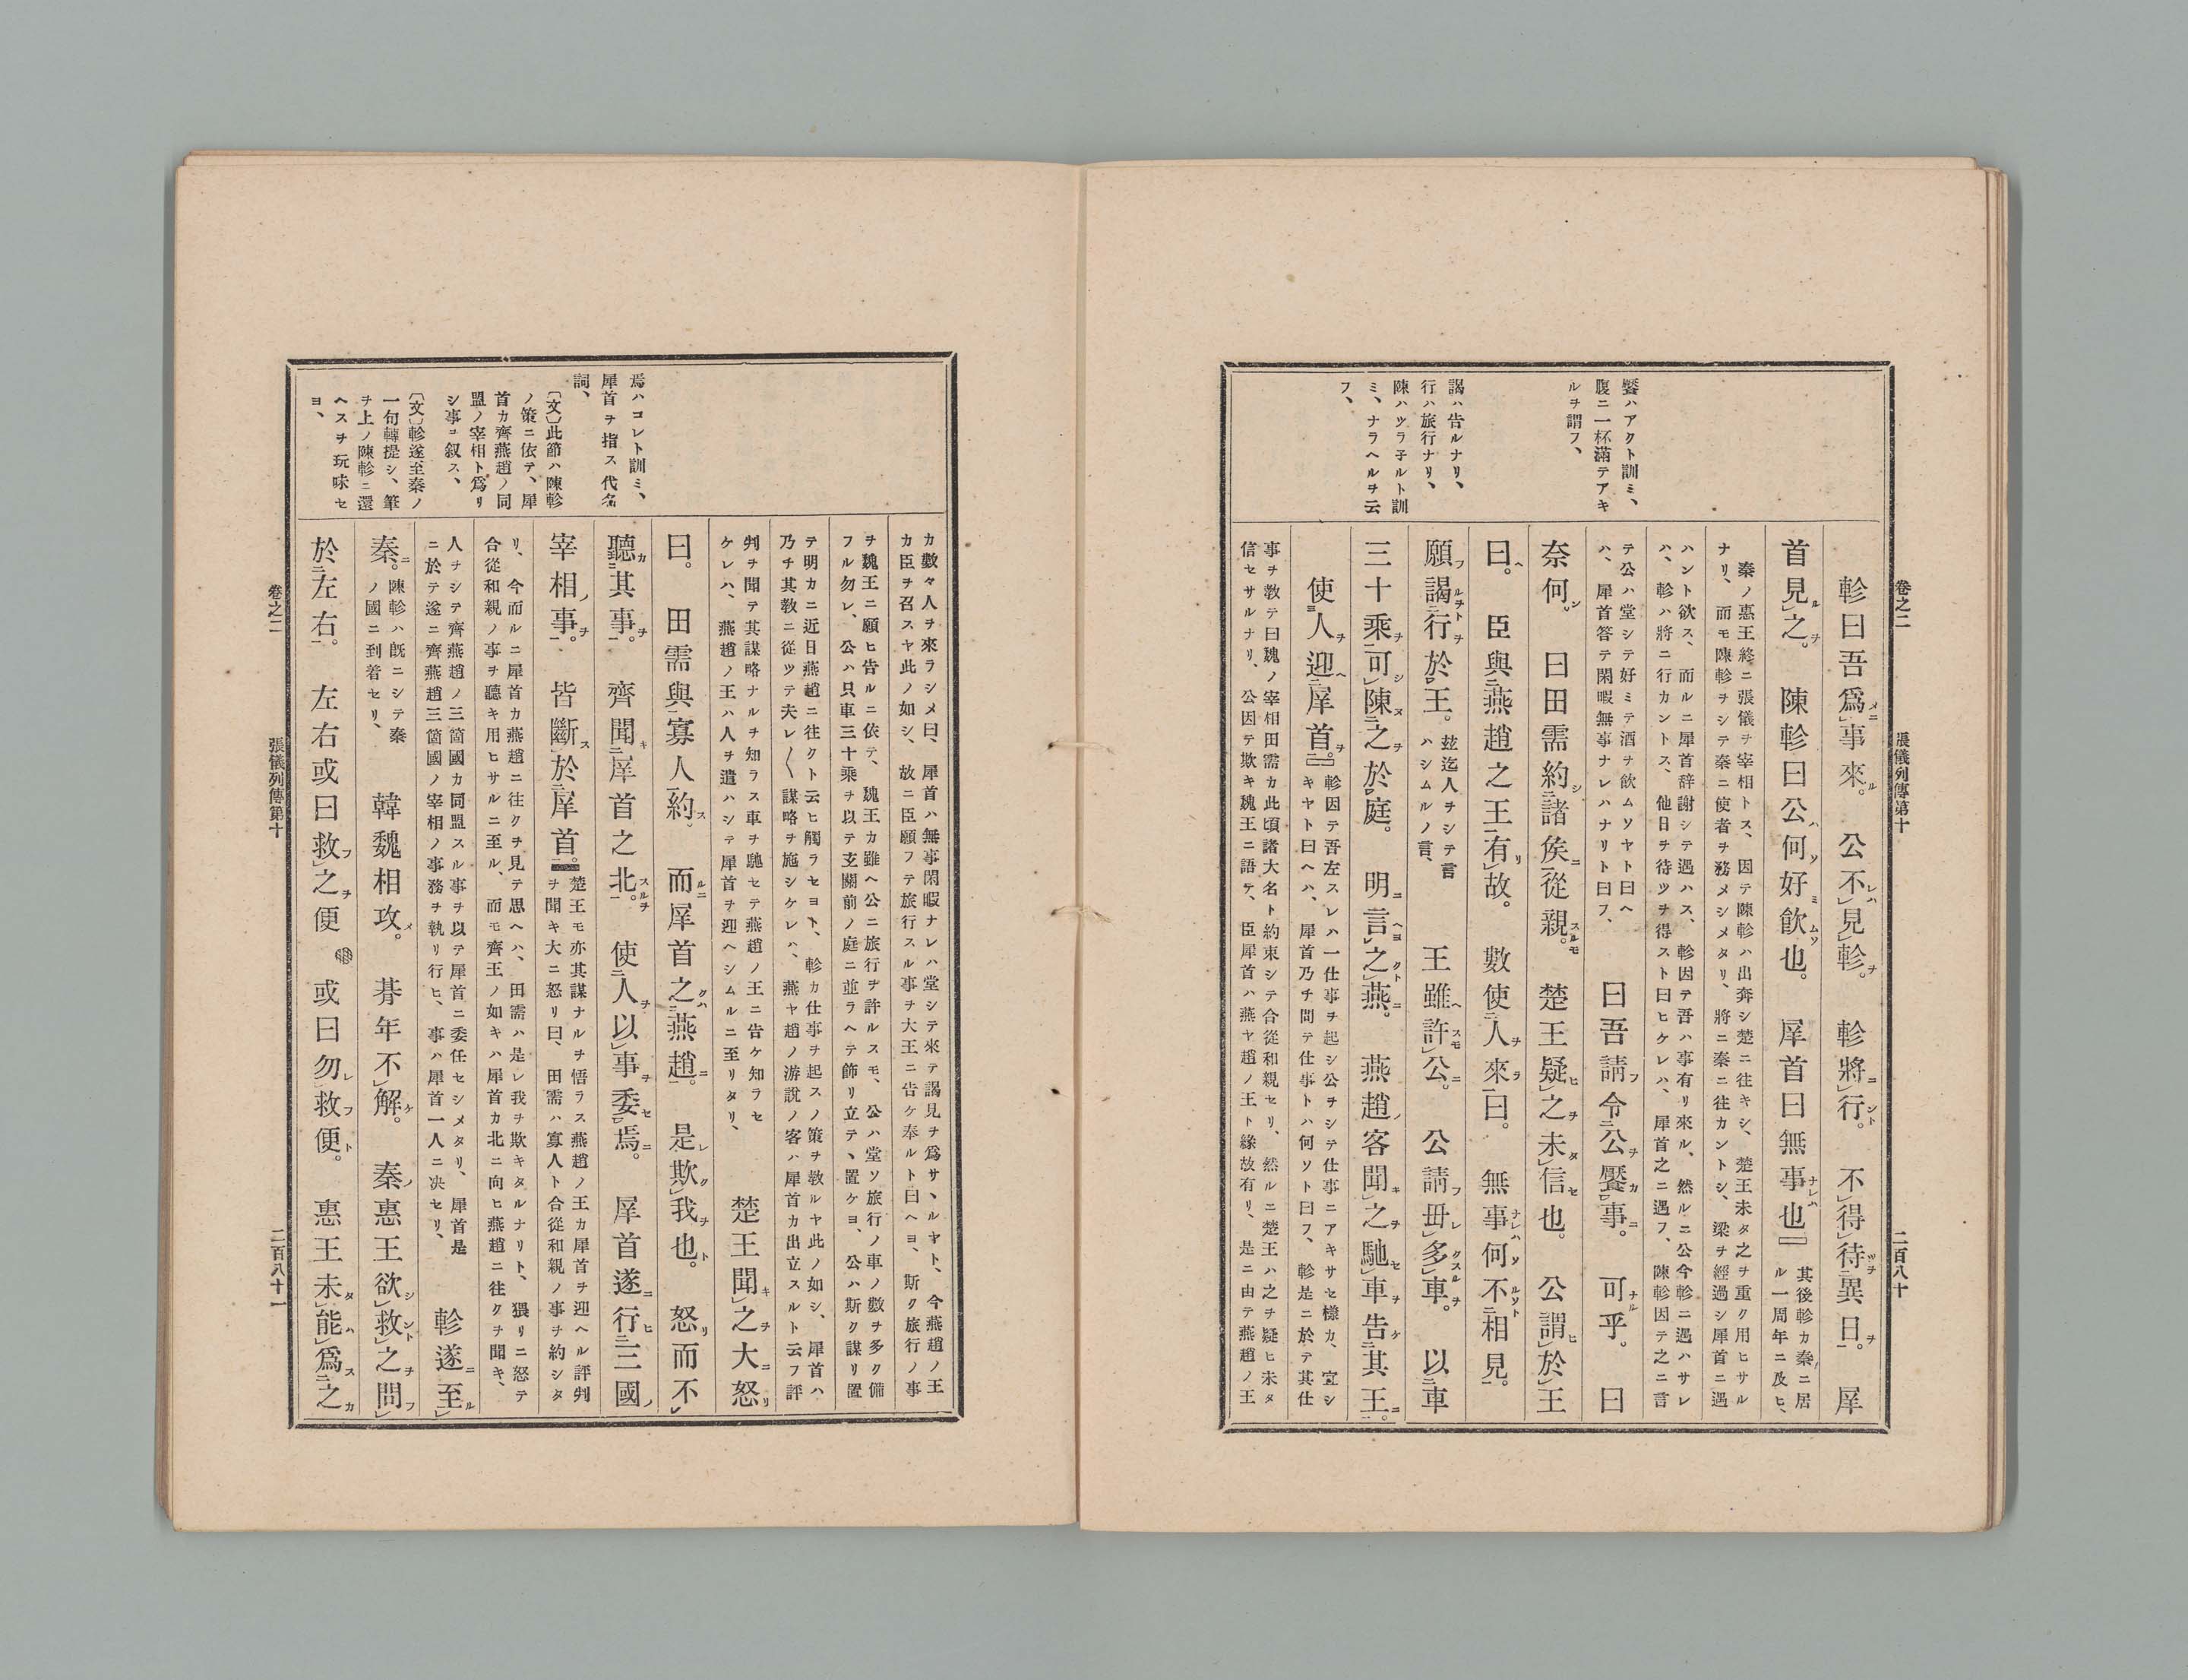 卷之二
張儀列傳第十
二百八十
饜ハアクト訓ミ、
腹ニ一杯滿テアキ
ルヲ謂フ、
謁ハ告ルナリ、
行ハ旅行ナリ、
陳ハツラ子ルト訓
ミ、ナラヘルヲ云
フ、
軫曰吾爲事來。公不見軫。軫將行。不得待異日。犀
首見之。陳軫曰公何好飮也。犀首曰無事也
其後軫カ秦ニ居
ル一周年ニ及ヒ、
秦ノ惠王終ニ張儀ヲ宰相トス、因テ陳軫ハ出奔シ楚ニ往キシ、楚王未タ之ヲ重ク用ヒサル
ナリ、而モ陳軫ヲシテ秦ニ使者ヲ務メシメタリ、將ニ秦ニ往カントシ、梁ヲ經過シ犀首ニ遇
ハント欲ス、而ルニ犀首辭謝シテ遇ハス、軫因テ吾ハ事有リ來ル、然ルニ公今軫ニ遇ハサレ
ハ、軫ハ將ニ行カントス、他日ヲ待ツヲ得スト曰ヒケレハ、犀首之ニ遇フ、陳軫因テ之ニ言
テ公ハ堂シテ好ミテ酒ヲ飮ムソヤト曰ヘ
ハ、犀首答テ閑暇無事ナレハナリト曰フ、
曰吾請令公饜事。可乎。曰
奈何。曰田需約諸矦從親。楚王疑之未信也。公謂於王
曰。臣與燕趙之王有故。數使人來曰。無事何不相見。
願謁行於王。
玆迄人ヲシテ言
ハシムルノ言、
王雖許公。公請毋多車。以車
三十乘可陳之於庭。明言之燕。燕趙客聞之馳車告其王。
使人迎犀首。
軫因テ吾左スレハ一仕事ヲ起シ公ヲシテ仕事ニアキサセ樣カ、宜シ
キヤト曰ヘハ、犀首乃チ問テ仕事トハ何ソト曰フ、軫是ニ於テ其仕
事ヲ敎テ曰魏ノ宰相田需カ此頃諸大名ト約束シテ合從和親セリ、然ルニ楚王ハ之ヲ疑ヒ未タ
信セサルナリ、公因テ欺キ魏王ニ語テ、臣犀首ハ燕ヤ趙ノ王ト緣故有リ、是ニ由テ燕趙ノ王
焉ハコレト訓ミ、
犀首ヲ指ス代名
詞、
〔文〕此節ハ陳軫
ノ策ニ依テ、犀
首カ齊燕趙ノ同
盟ノ宰相ト爲リ
シ事ヲ叙ス、
〔文〕軫遂至秦ノ
一句轉提シ、筆
ヲ上ノ陳軫ニ還
ヘスヲ玩味セ
ヨ、
カ數々人ヲ來ラシメ曰、犀首ハ無事閑暇ナレハ堂シテ來テ謁見ヲ爲サヽルヤト、今燕趙ノ王
カ臣ヲ召スヤ此ノ如シ、故ニ臣願フテ旅行スル事ヲ大王ニ告ケ奉ルト曰ヘヨ、斯ク旅行ノ事
ヲ魏王ニ願ヒ告ルニ依テ、魏王カ雖ヘ公ニ旅行ヲ許ルスモ、公ハ堂ソ旅行ノ車ノ數ヲ多ク備
フル勿レ、公ハ只車三十乘ヲ以テ玄關前ノ庭ニ並ラヘテ飾リ立テヽ置ケヨ、公ハ斯ク謀リ置
テ明カニ近日燕趙ニ往クト云ヒ觸ラセヨト、軫カ仕事ヲ起スノ策ヲ敎ルヤ此ノ如シ、犀首ハ
乃チ其敎ニ從ツテ夫レ〳〵謀略ヲ施シケレハ、燕ヤ趙ノ游說ノ客ハ犀首カ出立スルト云フ評
判ヲ聞テ其謀略ナルヲ知ラス車ヲ馳セテ燕趙ノ王ニ告ケ知ラセ
ケレハ、燕趙ノ王ハ人ヲ遣ハシテ犀首ヲ迎ヘシムルニ至リタリ、
楚王聞之大怒
曰。田需與寡人約。而犀首之燕趙。是欺我也。怒而不
聽其事。齊聞犀首之北。使人以事委焉。犀首遂行三國
宰相事。皆斷於犀首。
楚王モ亦其謀ナルヲ悟ラス燕趙ノ王カ犀首ヲ迎ヘル評判
ヲ聞キ大ニ怒リ曰、田需ハ寡人ト合從和親ノ事ヲ約シタ
リ、今而ルニ犀首カ燕趙ニ往クヲ見テ思ヘハ、田需ハ是レ我ヲ欺キタルナリト、猥リニ怒テ
合從和親ノ事ヲ聽キ用ヒサルニ至ル、而モ齊王ノ如キハ犀首カ北ニ向ヒ燕趙ニ往クヲ聞キ、
人ヲシテ齊燕趙ノ三箇國カ同盟スル事ヲ以テ犀首ニ委任セシメタリ、犀首是
ニ於テ遂ニ齊燕趙三箇國ノ宰相ノ事務ヲ執リ行ヒ、事ハ犀首一人ニ决セリ、
軫遂至
秦。
陳軫ハ旣ニシテ秦
ノ國ニ到着セリ、
韓魏相攻。朞年不解。秦惠王欲救之問
於左右。左右或曰救之便
或曰勿救便。惠王未能爲之
卷之二
張儀列傳第十
二百八十一